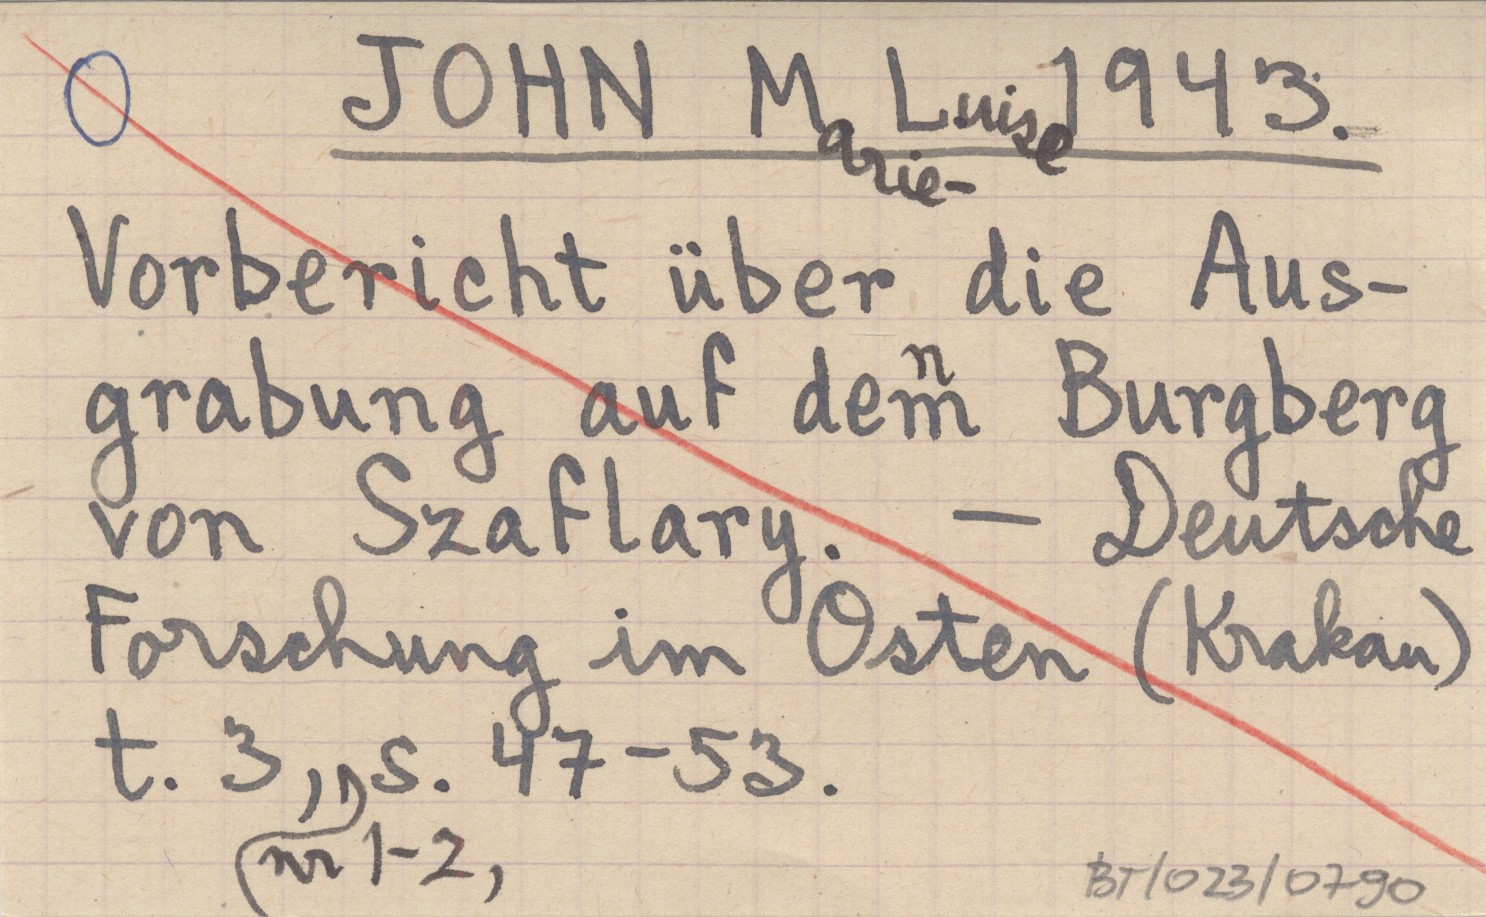 JOHN Marie-Luise 1943.
Vorbericht über die Aus-
grabung auf den Burgberg
von Szaflary. — Deutsche
Forschung im Osten (Krakau)
t. 3, nr 1-2, s. 47-53.
BT/023/0790